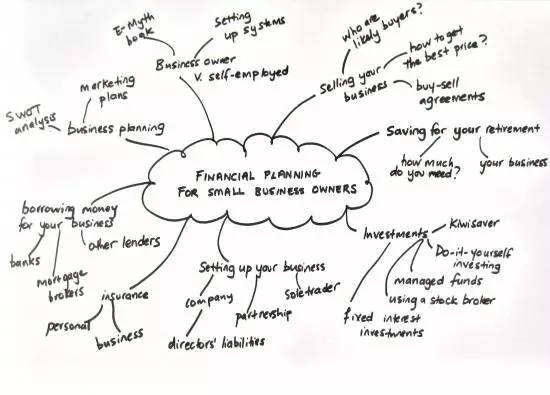 E-Myth
book
Setting
up systems
Business owner
V. self-employed
who are
likely buyers?
how to get
the best price?
Selling your
business
buy-sell
agreements
marketing
plans
SWOT
analysis
business planning
Saving for your retirement
how much
do you need?
your business
FINANCIAL PLANNING
FOR SMALL BUSINESS OWNERS
borrowing money
for your business
banks
mortgage
brokers
other lenders
insurance
personal
business
Setting up your business
company
partnership
sole trader
directors' liabilities
Investments
Kiwisaver
Do-it-yourself
investing
managed funds
using a stock broker
fixed interest
investments